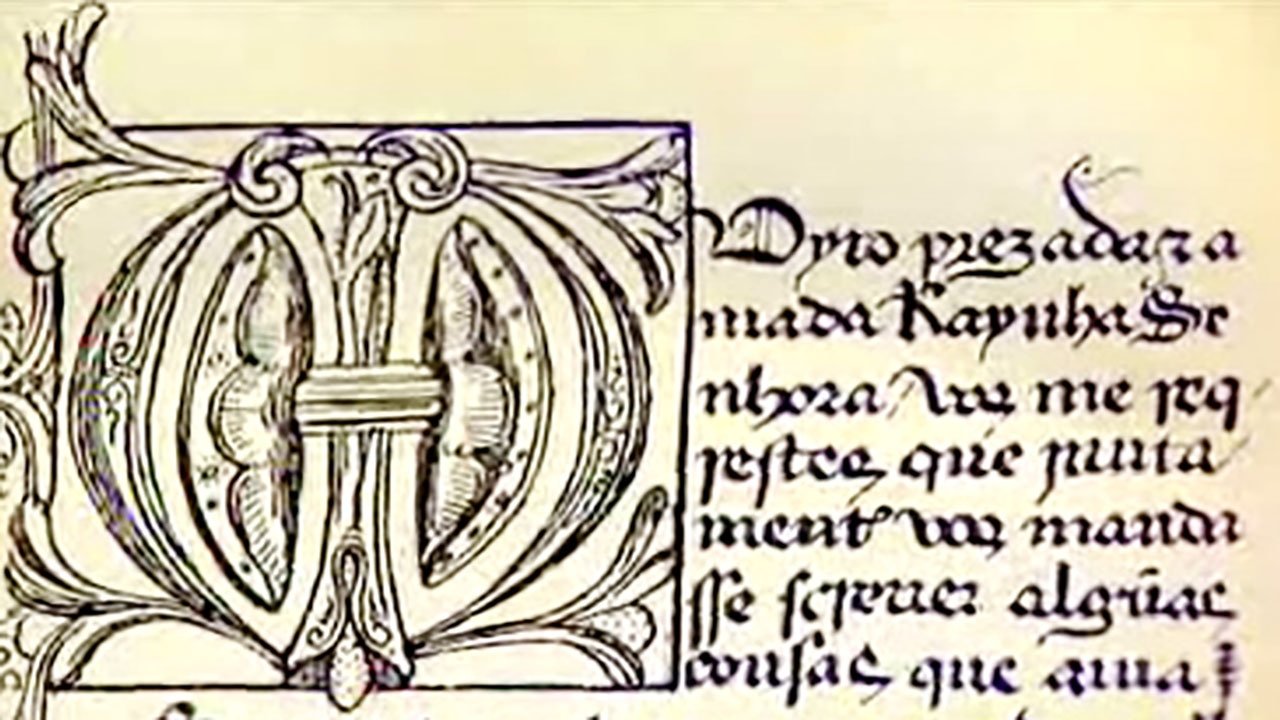 Muyto prezada z a
mada Raynha Se
nhora Vos me req
restes que junta
ment vos manda
sse screver algũas
cousas que